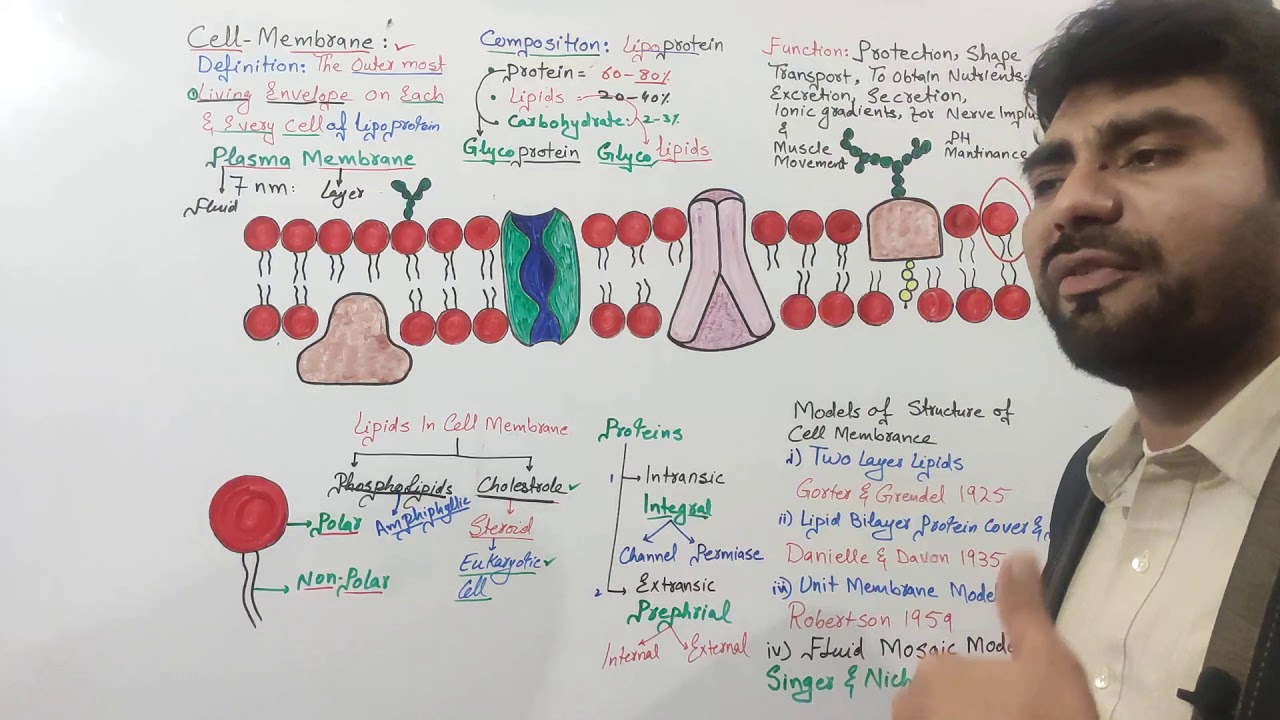 Cell-Membrane:
Definition: The Outer most
Living Envelope on Each
& Every Cell of Lipoprotein
Plasma Membrane
7 nm:
Fluid
Layer
Composition: Lipoprotein
Protein = 60-80%
Lipids = 20-40%
Carbohydrate: 2-3%
Glycoprotein Glycolipids
Function: Protection, Shape
Transport, To Obtain Nutrients:
Excretion, Secretion,
Ionic gradients, For Nerve Implu
&
Muscle
Movement
PH
Mantinance
Lipids In Cell Membrane
Phospholipids
Cholestrole
Amphiphyllic
Steroid
Eukaryotic
Cell
Polar
Non-Polar
Proteins
1 Intransic
Integral
Channel Permiase
2 Extransic
Prephrial
Internal External
Models of Structure of
Cell Membrance
i) Two Layer Lipids
Gorter & Grendel 1925
ii) Lipid Bilayer Protein Cover &
Danielle & Davon 1935
iii) Unit Membrane Model
Robertson 1959
iv) Fluid Mosaic Mode
Singer & Nich